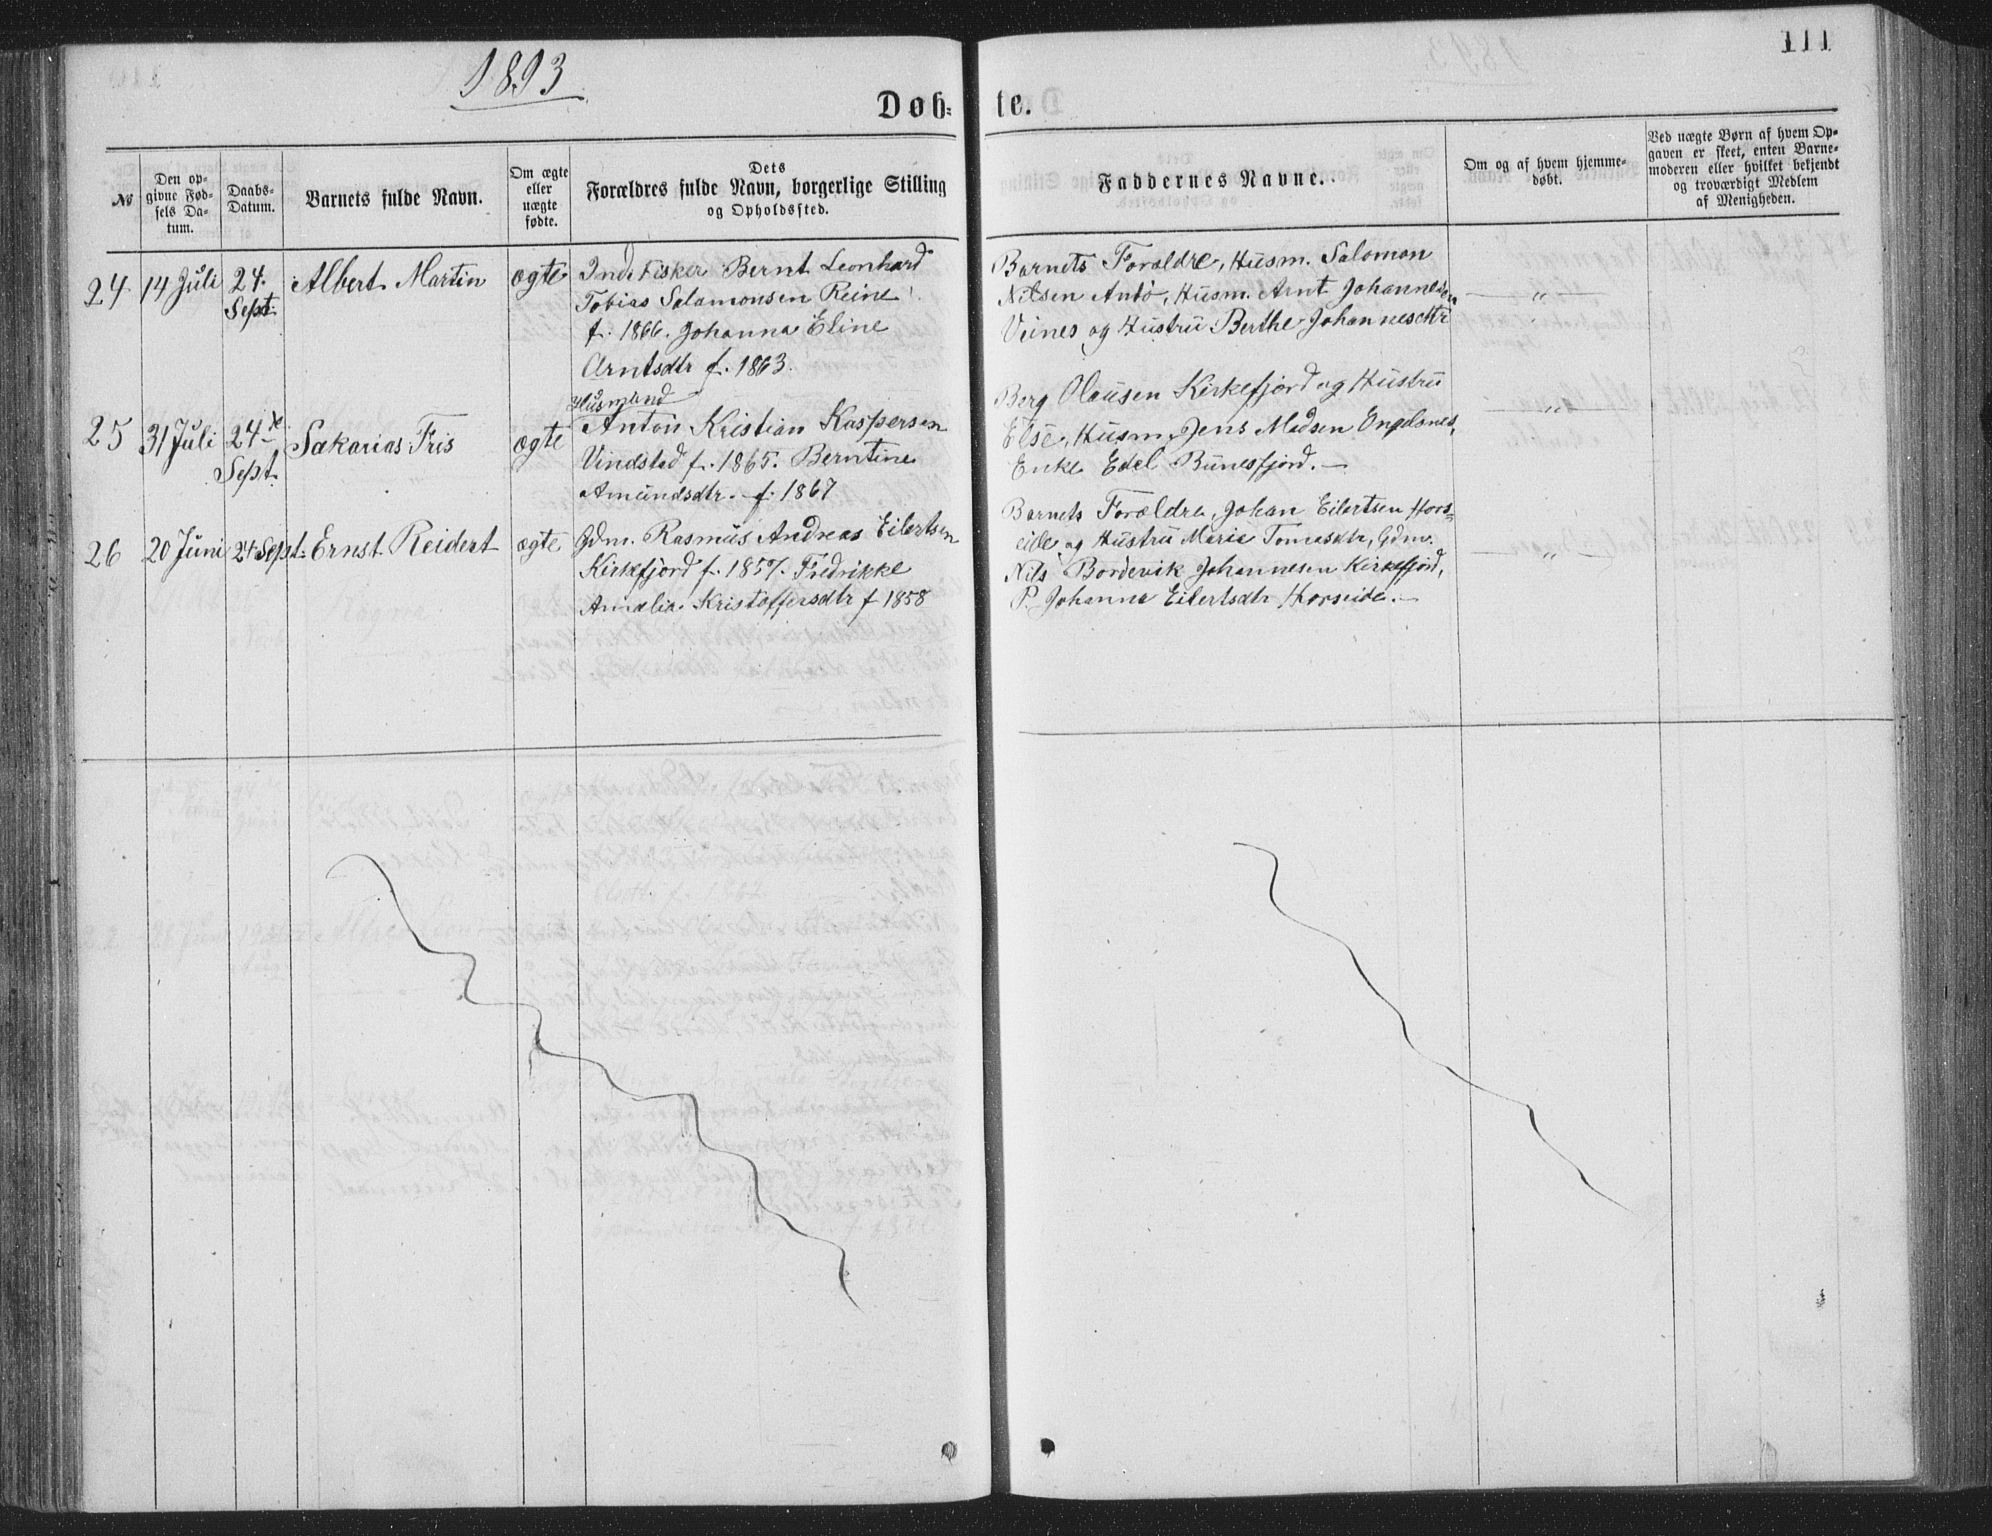 1893
111
Døb-
te.
№
Den op-
givne Fød-
sels Da-
tum.
Daabs-
Datum.
Barnets fulde Navn.
Om ægte
eller
uægte
fødte.
Dets
Forældres fulde Navn, borgerlige Stilling
og Opholdssted.
Faddernes Navne.
Om og af hvem hjemme-
døbt.
Ved uægte Børn af hvem Op-
gaven er skeet, enten Barne-
moderen eller hvilket bekjendt
og troværdigt Medlem
af Menigheden.
24 14 Juli 24. Albert Martin ægte Ind. Fisker Bernt Leonhard
Sept. Tobias Salamonsen Reine
f. 1866. Johanna Eline
Arntsdtr f. 1863.
Barnets Forældre, Husm. Salomon
Nilsen Antö, Husm. Arnt Johannesen — " —
Viines og Hustru Berthe Johannesdtr
25 31 Juli 24de Sakarias Fris ægte Husmand
Sept. Anton Kristian Kaspersen
Vindstad f. 1865. Berntine
Amundsdtr. f. 1867
Berg Olausen Kirkefjord og Hustru
Else, Husm. Jens Madsen Engelsnes, — " —
Enke Edel Bunesfjord. —
26 20 Juni 24 Sept. Ernst Reidert ægte Gdm. Rasmus Andreas Eilertsen
Kirkefjord f. 1857. Fredrikke
Amalia Kristoffersdtr f 1858
Barnets Forældre, Johan Eilertsen Hors-
eide og Hustru Marie Tomasdtr, Gdm.
Nils Bordevik Johannesen Kirkefjord, — " —
P. Johanna Eilertsdtr Horseide. —